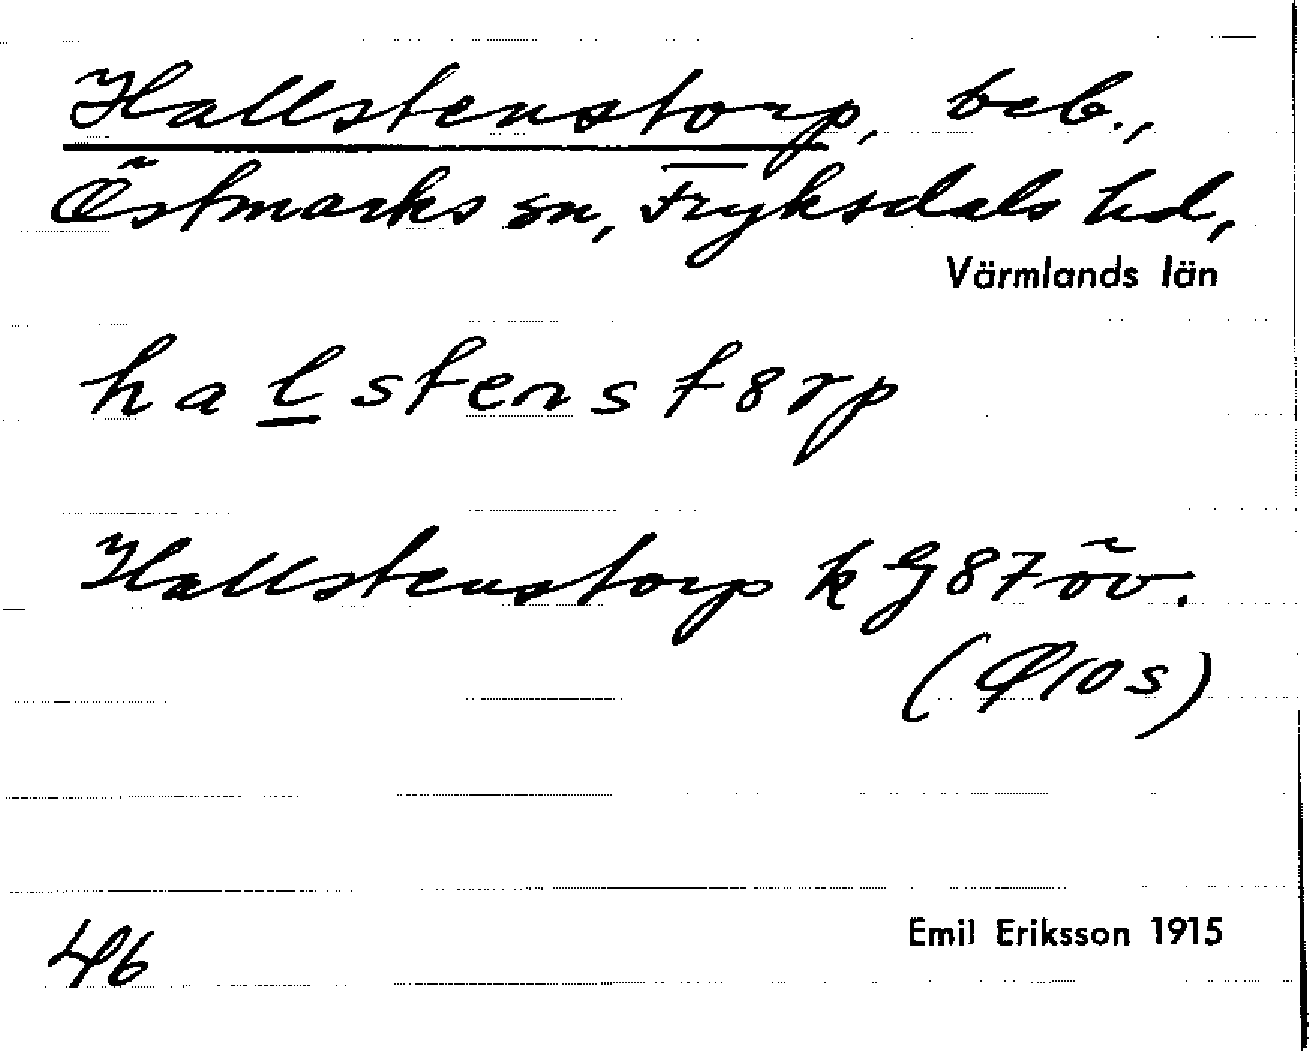 Hallstenstorp, beb.,
Östmarks sn, Fryksdals hd,
Värmlands län
halstenst8rp
Hallstenstorp k G87 öv.
(Ø10s)
Emil Eriksson 1915
46